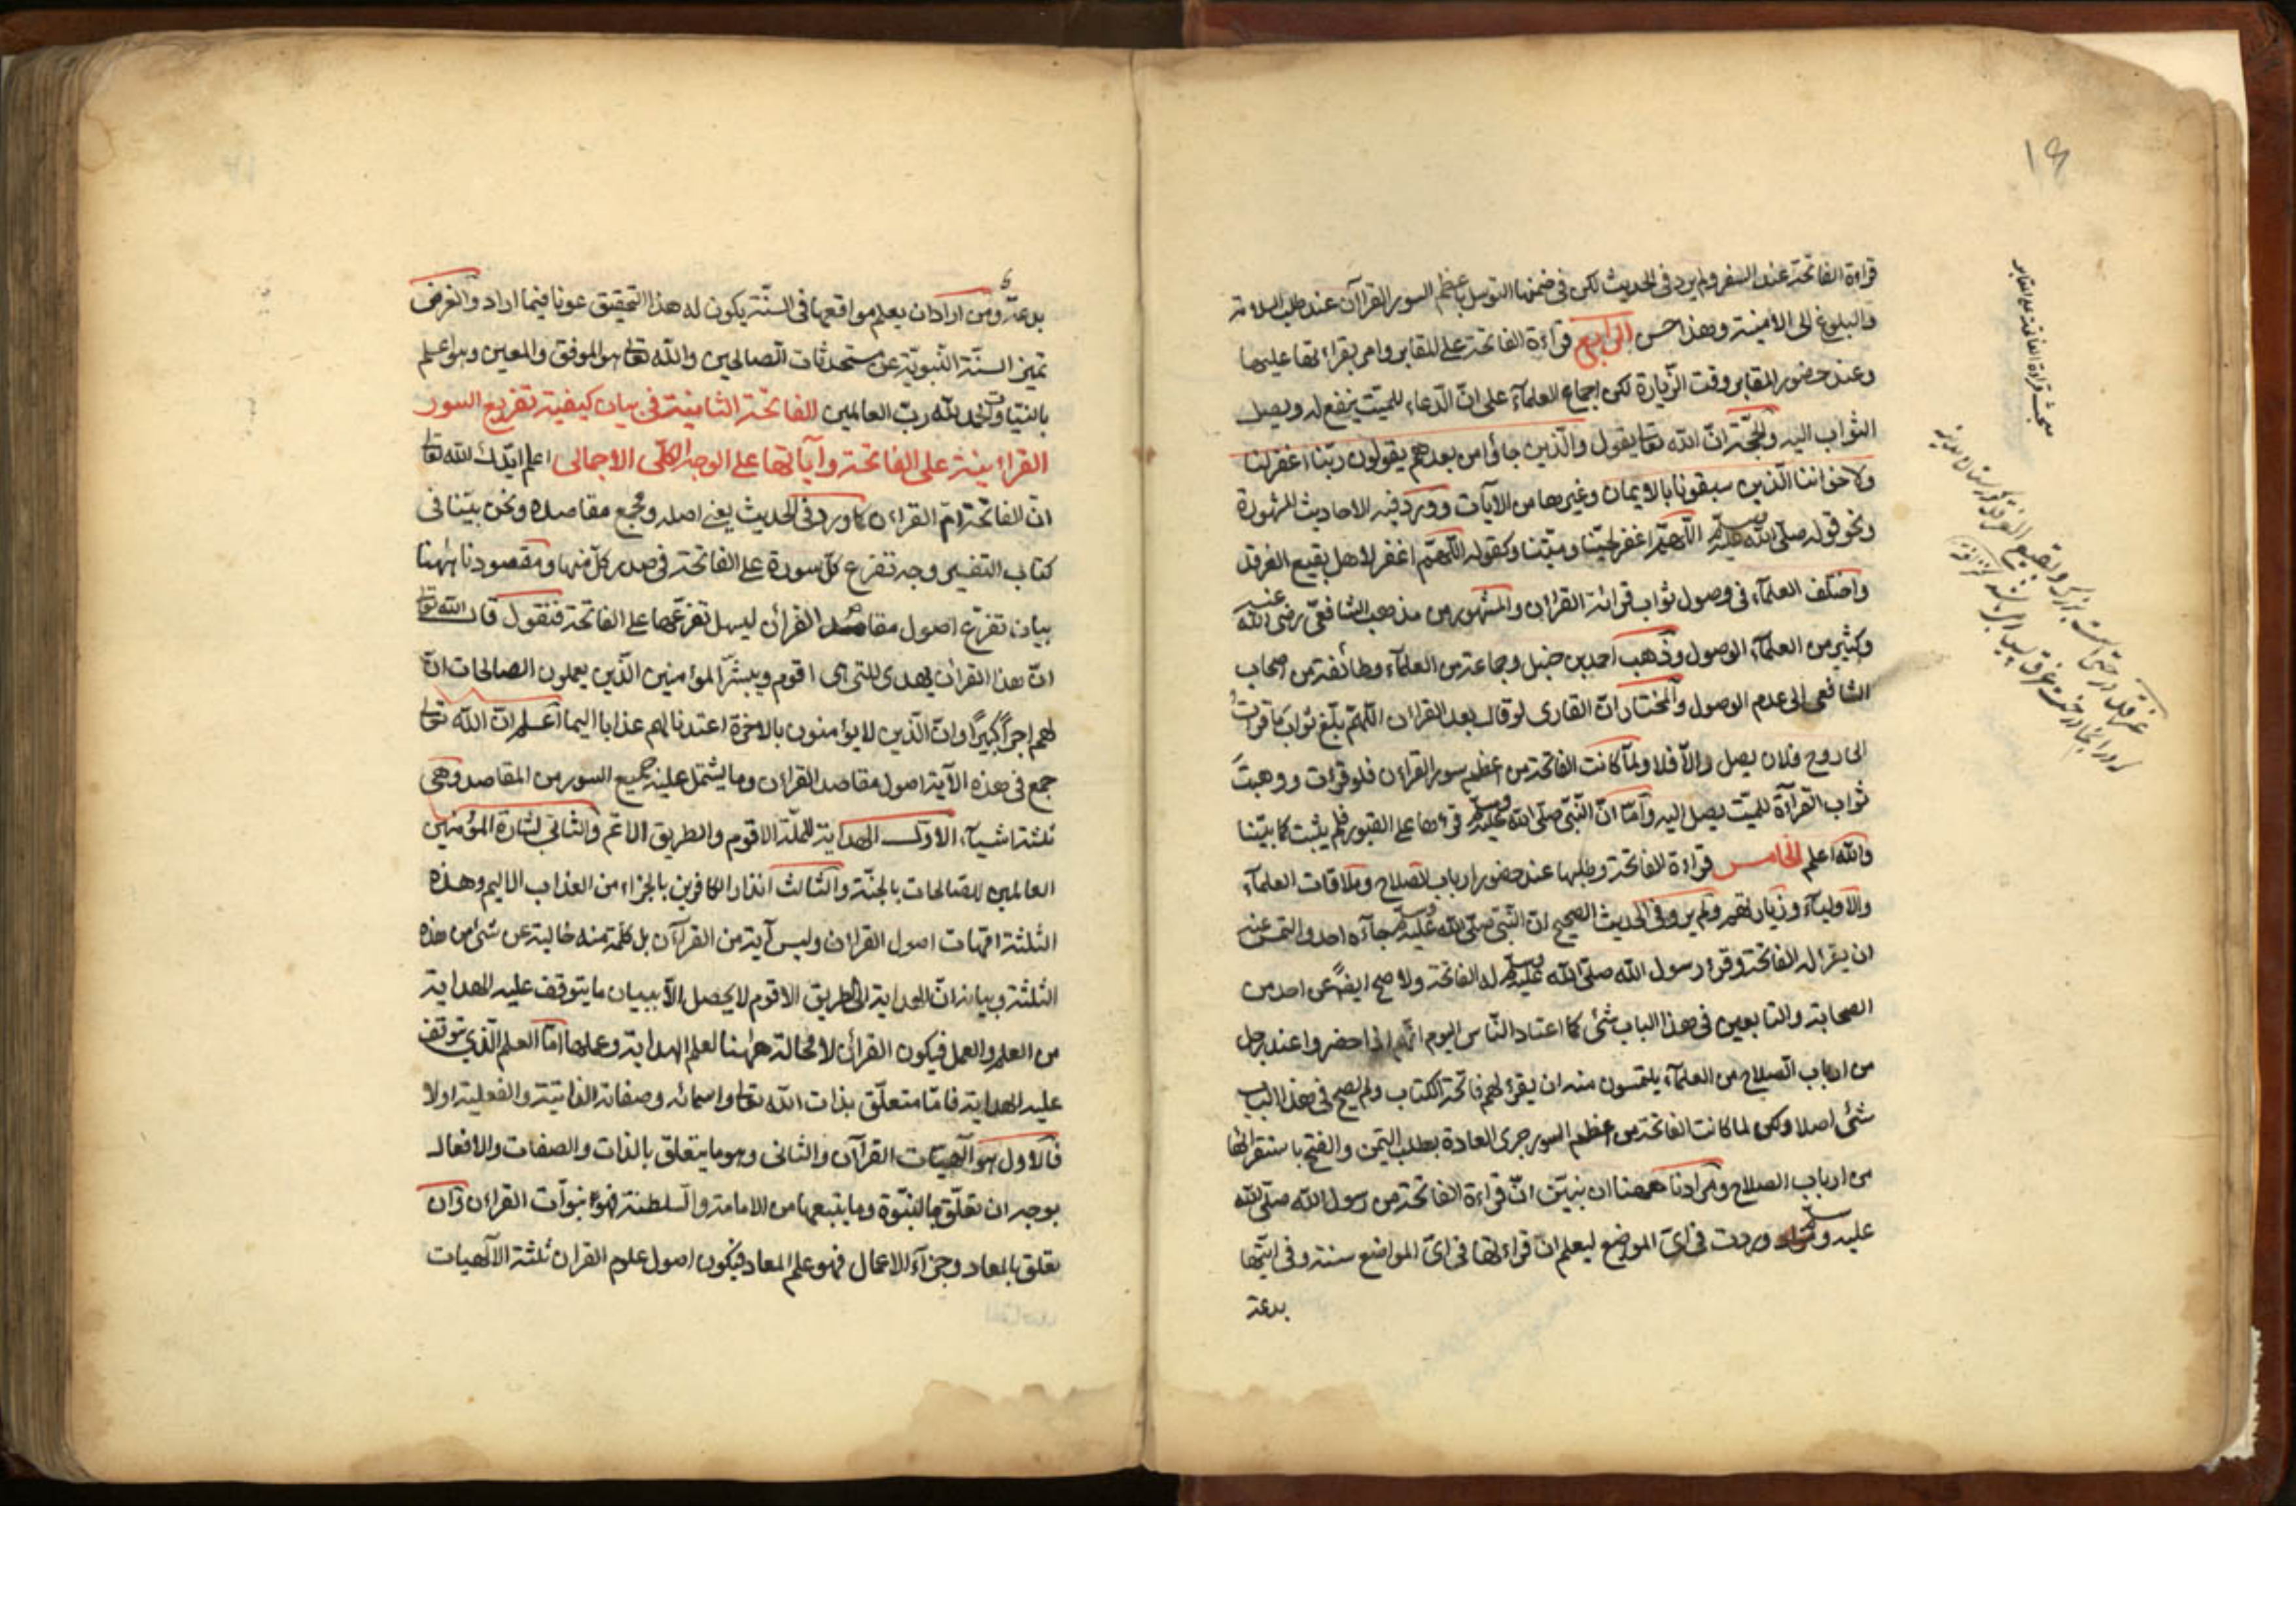 قراءة الفاتحة عند السفر ولم يرد في الحديث لكن في ضمنها التوسل باعظم السور القرآن عند طلب السلامة
والبلوغ الى الامنية وهذا حسن الرابع قراءة الفاتحة على المقابر وامر بقراءتها عليها
وعند حضور المقابر وقت الزيارة لكن اجماع العلمآء على انّ الدّعاء للميّت ينفع له ويصل
الثواب اليه والحجّة انّ الله تعالى يقول والّذين جاؤا من بعدهم يقولون ربّنا اغفر لنا
ولاخواننا الّذين سبقونا بالايمان وغيرها من الآيات وورد فيه الاحاديث المشهورة
ونحو قوله صلّى الله عليه وسلم اللّهمّ اغفر لحيّنا وميّتنا وكقوله اللّهمّ اغفر لاهل بقيع الغرقد
واختلف العلمآء في وصول ثواب قرائة القرآن والمشهور من مذهب الشافعيّ رضى الله عنه
وكثير من العلمآء الوصول وذهب احمد بن حنبل وجماعة من العلمآء وطائفة من اصحاب
الشافعي الى عدم الوصول والمختار انّ القارى لو قال بعد القرآن اللّهمّ بلّغ ثواب ما قرات
الى روح فلان يصل والّا فلا ولمّا كانت الفاتحة من اعظم سور القرآن فلو قرات ووهبت
ثواب القرآءة للميّت يصل اليه وامّا انّ النّبيّ صلّى الله عليه وسلم قرءها على القبور فلم يثبت كما بيّنّا
والله اعلم الخامس قراءة الفاتحة وطلبها عند حضور ارباب الصلاح وملاقات العلمآء
والاولياء وزيارتهم ولم يرد في الحديث الصحيح انّ النّبي صلّى الله عليه وسلم جآءه احد والتمس عنه
ان يقرا له الفاتحة وقرء رسول الله صلّى الله عليه وسلم له الفاتحة ولا صح ايضًا عن احد من
الصحابة والتابعين في هذا الباب شئ كما اعتاد النّاس اليوم انّهم اذا حضروا عند رجل
من ارباب الصلاح من العلمآء يلتمسون منه ان يقرء لهم فاتحة الكتاب ولم يصح في هذا الباب
شئ اصلا ولكن لما كانت الفاتحة من اعظم السور جرى العادة بطلب التيمن والفتح باستقرائها
من ارباب الصلاح ومرادنا ههنا ان نبيّن انّ قراءة الفاتحة من رسول الله صلّى الله
عليه وسلم وردت في اىّ المواضع ليعلم انّ قراءتها في اىّ المواضع سنة وفي ايّها
بدعة
مبحث قراءة الفاتحة على المقابر
بدعة ومن اراد ان يعلم مواقعها في السنّة يكون له هذا التحقيق عونا فيما اراد والغرض
تميز السنّة النّبويّة عن مستحدثات الصالحين والله تعالى هو الموفق والمعين وهو اعلم
بالنيّات والحمد لله ربّ العالمين الفاتحة الثامنة في بيان كيفية تفريع السور
القرآنية على الفاتحة وآياتها على الوجه الكلّى الاجمالى اعلم ايّدك الله تعالى
انّ الفاتحة امّ القرآن كما ورد في الحديث يعنى اصله ومجمع مقاصده ونحن بيّنا في
كتاب التفسير وجه تفرّع كلّ سورة على الفاتحة في صدر كلّ منها ومقصودنا ههنا
بيان تفرّع اصول مقاصد القرآن ليسهل تفرّعها على الفاتحة فنقول قال الله تعالى
انّ هذا القرآن يهدى للتى هى اقوم ويبشّر المؤمنين الّذين يعملون الصالحات انّ
لهم اجراً كبيراً وانّ الّذين لا يؤمنون بالاخرة اعتدنا لهم عذابا اليما اعلم انّ الله تعالى
جمع في هذه الآية اصول مقاصد القرآن وما يشتمل عليه جميع السور من المقاصد وهى
ثلثة اشيآء الاوّل الهداية للملّة الاقوم والطريق الاتم والثانى بشارة المؤمنين
العاملين للصّالحات بالجنّة والثالث انذار الكافرين بالجزاء من العذاب الاليم وهذه
الثلثة امّهات اصول القرآن وليس آية من القرآن بل كلمة منه خالية عن شئ من هذه
الثلثة وبيانه انّ الهداية الى الطريق الاقوم لا يحصل الّا ببيان ما يتوقف عليه الهداية
من العلم والعمل فيكون القرآن لا محالة ههنا لعلم الهداية وعملها امّا العلم الّذى يتوقف
عليه الهداية فامّا متعلّق بذات الله تعالى واسمائه وصفاته الذاتية والفعلية اولا
فالاول هو آلهيّات القرآن والثانى وهو ما يتعلق بالذات والصفات والافعال
بوجه ان تعلّق بالنبّوة وما يتبعها من الامامة والسلطنة فهو نبوّات القرآن وان
تعلق بالمعاد وجزآء الاعمال فهو علم المعاد فيكون اصول علوم القرآن ثلثة الآلهيات